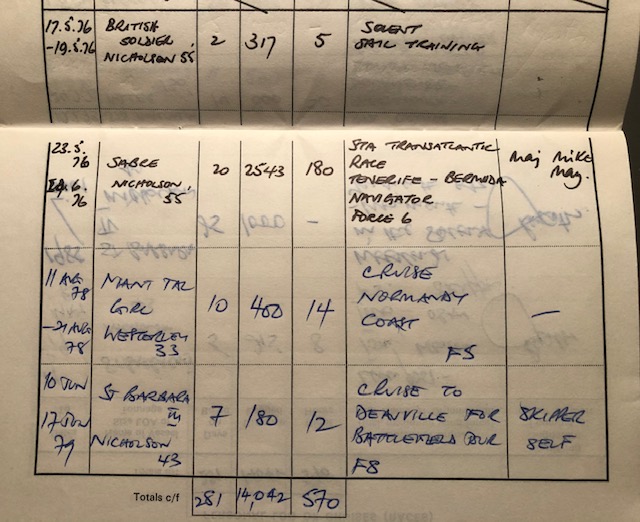 17.5.76 BRITISH SOLENT
-19.5.76 SOLDIER, 2 317 5 SAIL TRAINING
NICHOLSON 55
23.5. STA TRANSATLANTIC
76 SABRE 20 2543 180 RACE Maj Mike
NICHOLSON, TENERIFE - BERMUDA May.
.6. 55 NAVIGATOR
76 FORCE 6
11 AUG CRUISE
78 GIRL 10 400 14 NORMANDY —
-21 AUG WESTERLEY COAST
78 33 F5
10 JUN ST BARBARA CRUISE TO
III 7 180 12 DEAUVILLE FOR SKIPPER
17 JUN NICHOLSON BATTLEFIELD TOUR SELF
79 43 F8
Totals c/f 281 14,042 570